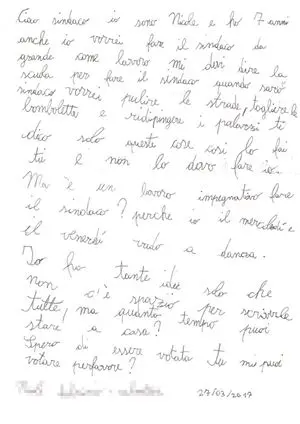 Ciao sindaco io sono Nicole e ho 7 anni
anche io vorrei fare il sindaco da
grande come lavoro mi devi dire la
scuola per fare il sindaco quando sarò
sindaco vorrei pulire le strade, togliere le
bombolette e ridipingere i palazzi te
dico solo queste cose così lo fai
tu e non lo devo fare io.
Ma è un lavoro impegnativo fare
il sindaco? perche io il mercoledì e
il venerdì vado a danza.
Io ho tante idee solo che
non c'è spazio per scriverle
tutte, ma quanto tempo puoi
stare a casa?
Spero di essere votata tu mi puoi
votare perfavore?
27/03/2017